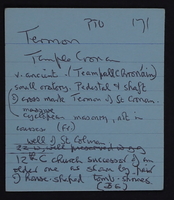 PTO 171
Termon
Temple Cronan
v. ancient. (Teampall Chronáin)
small oratory. Pedestal & shaft
of cross made Termon of St Cronan.
massive
cyclopean masonry, not in
courses (Fr)
well of St Colman
12th C church successor of an
older one as shown by pair
of house-shaped tomb-shrines.